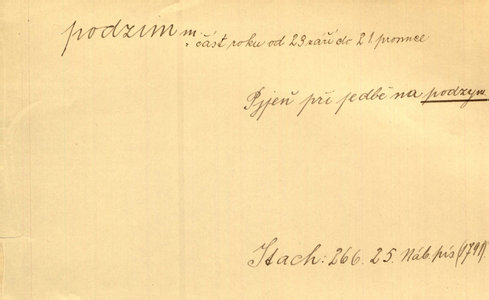 podzim m.
část roku od 23 září do 21 prosince
Pjjeň při jedbě na podzym
Stach: 266. 25. Náb. pís (1791).